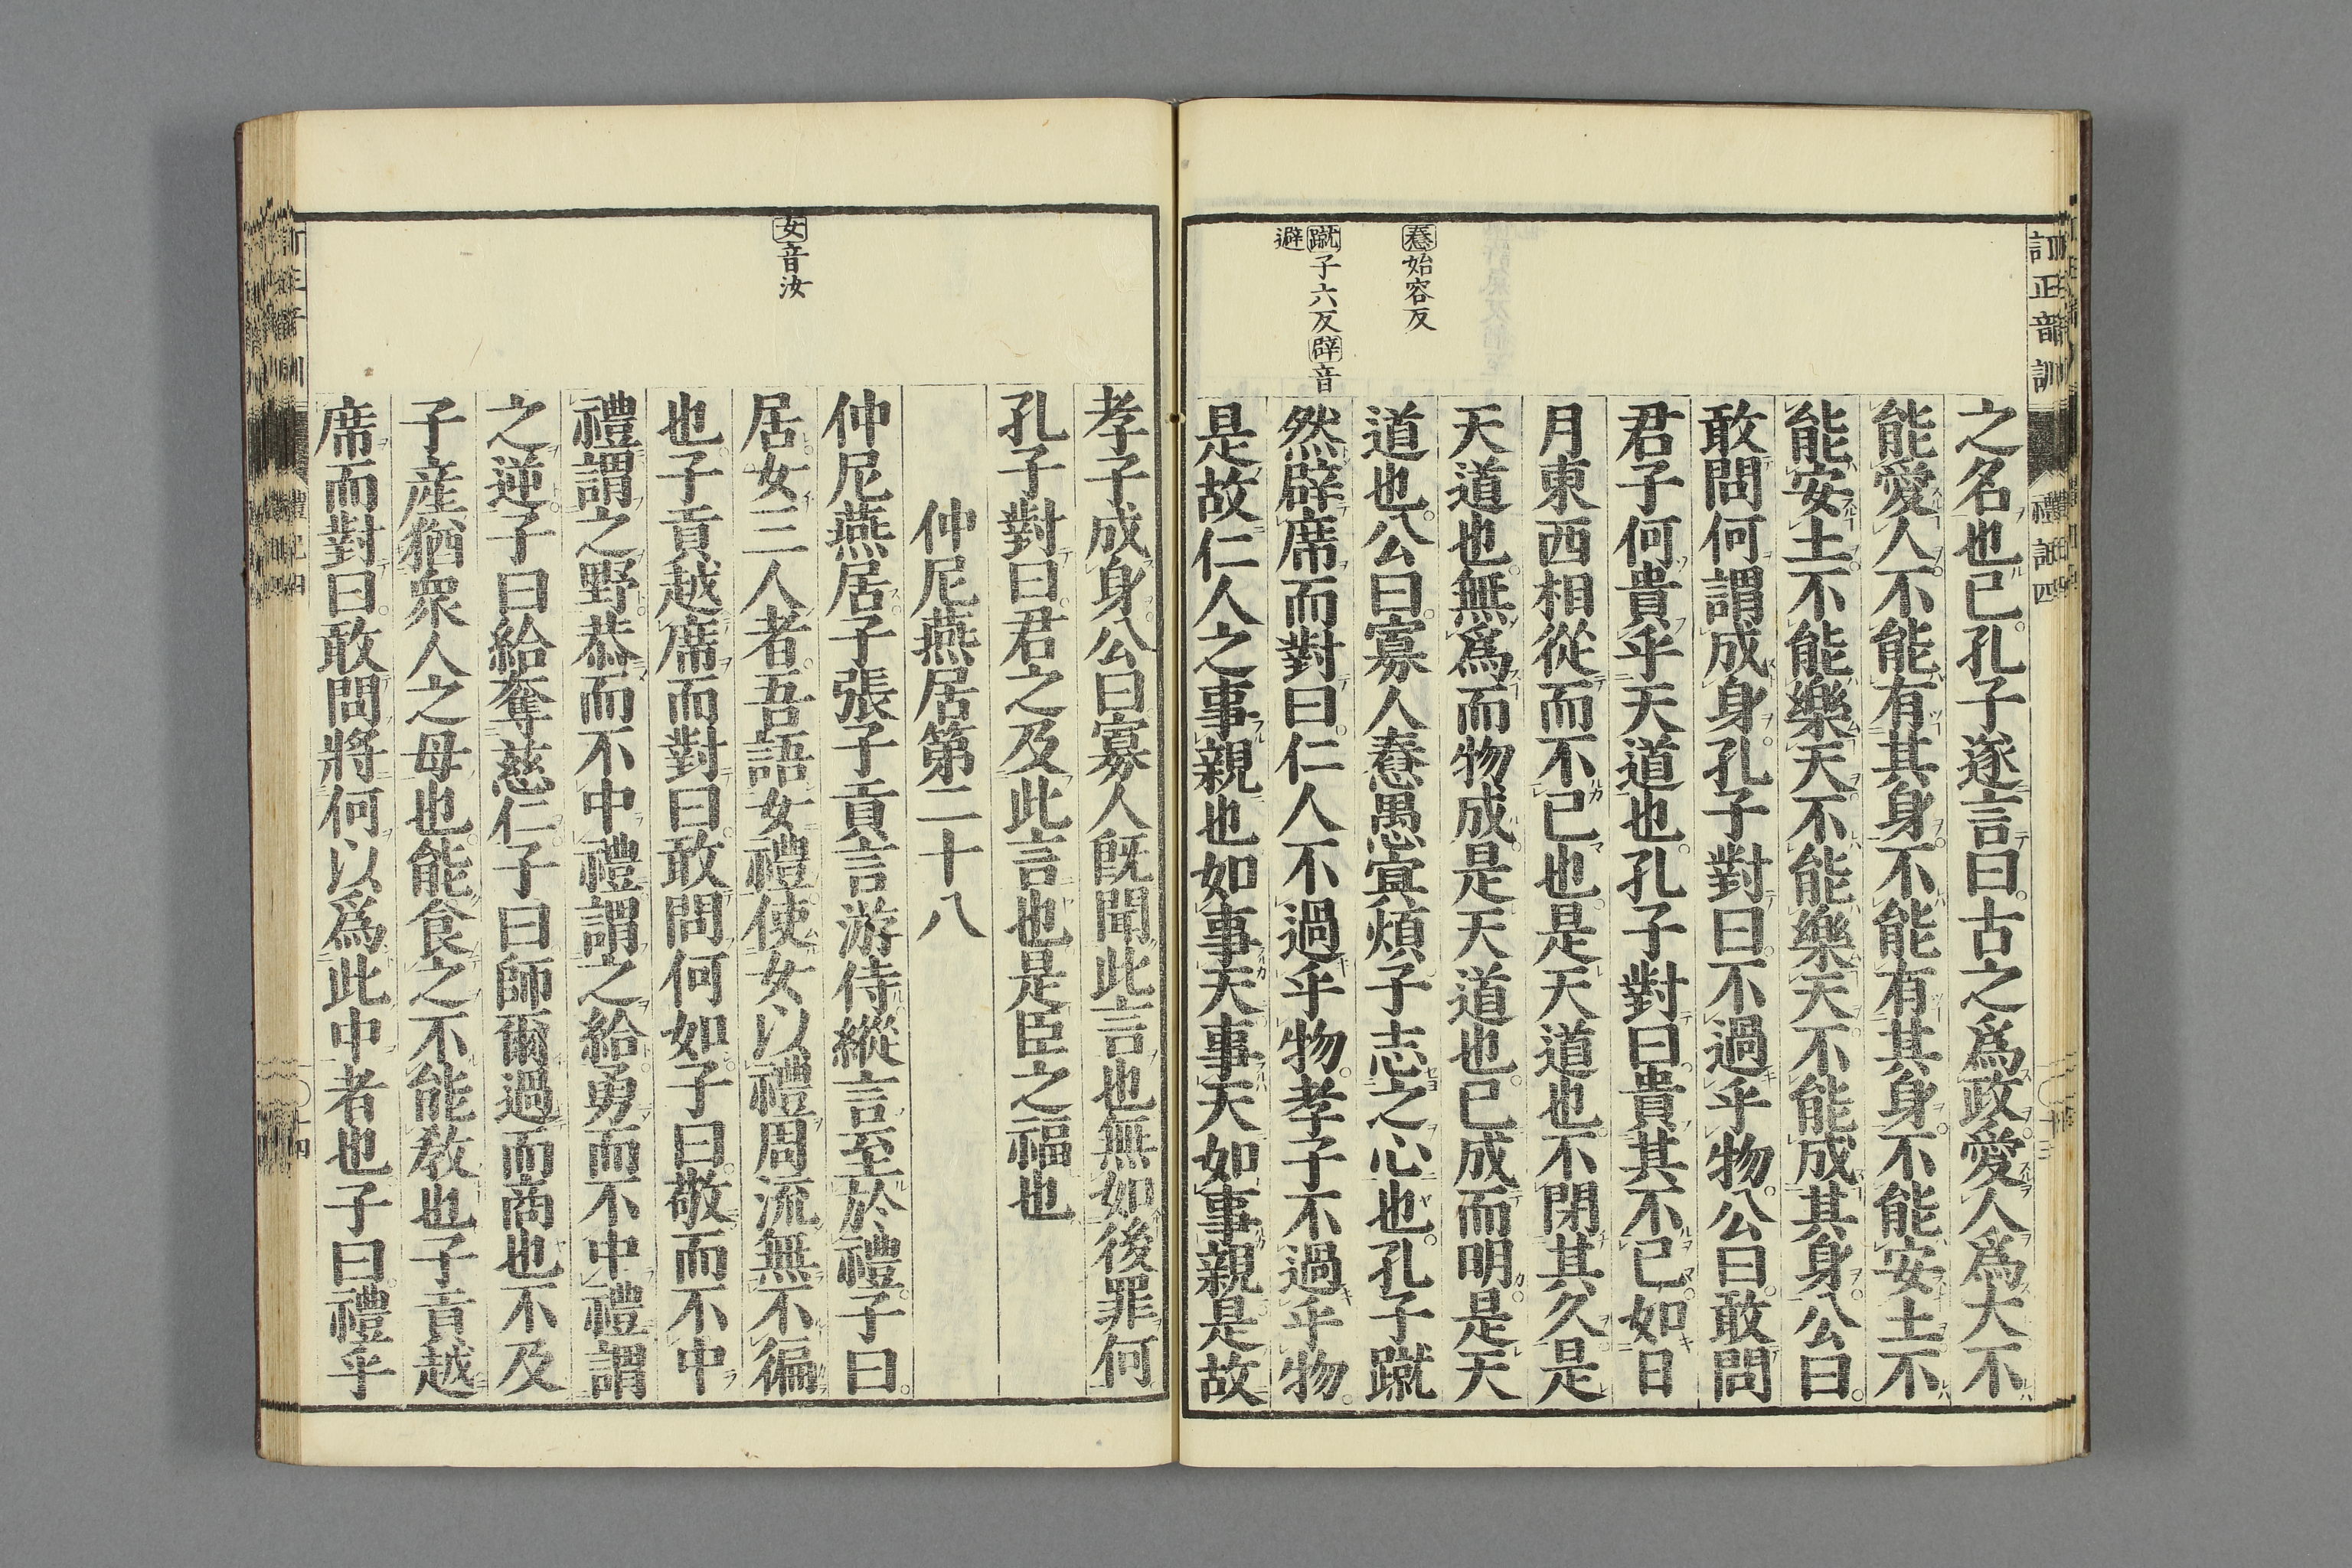 訂正音訓
禮記四
惷始容反
蹴子六反辟音
避
之名也已孔子遂言曰古之爲政愛人爲大不
能愛人不能有其身不能有其身不能安土不
能安土不能樂天不能樂天不能成其身公曰
敢問何謂成身孔子對曰不過乎物公曰敢問
君子何貴乎天道也孔子對曰貴其不已如日
月東西相從而不已也是天道也不閉其久是
天道也無爲而物成是天道也已成而明是天
道也公曰寡人惷愚冥煩子志之心也孔子蹴
然辟席而對曰仁人不過乎物孝子不過乎物
是故仁人之事親也如事天事天如事親是故
女音汝
孝子成身公曰寡人旣聞此言也無如後罪何
孔子對曰君之及此言也是臣之福也
仲尼燕居第二十八
仲尼燕居子張子貢言游侍縱言至於禮子曰
居女三人者吾語女禮使女以禮周流無不徧
也子貢越席而對曰敢問何如子曰敬而不中
禮謂之野恭而不中禮謂之給勇而不中禮謂
之逆子曰給奪慈仁子曰師爾過而商也不及
子産猶衆人之母也能食之不能敎也子貢越
席而對曰敢問將何以爲此中者也子曰禮乎